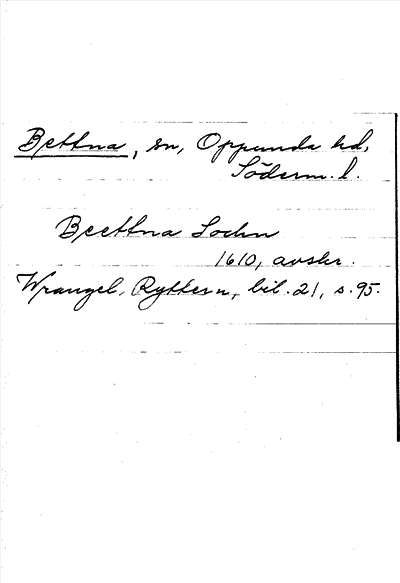 Bettna, sn, Oppunda hd,
Söderm. l.
Beettna Sochn
1610, avskr.
Wrangel, Ryttern, bil. 21, s. 95.